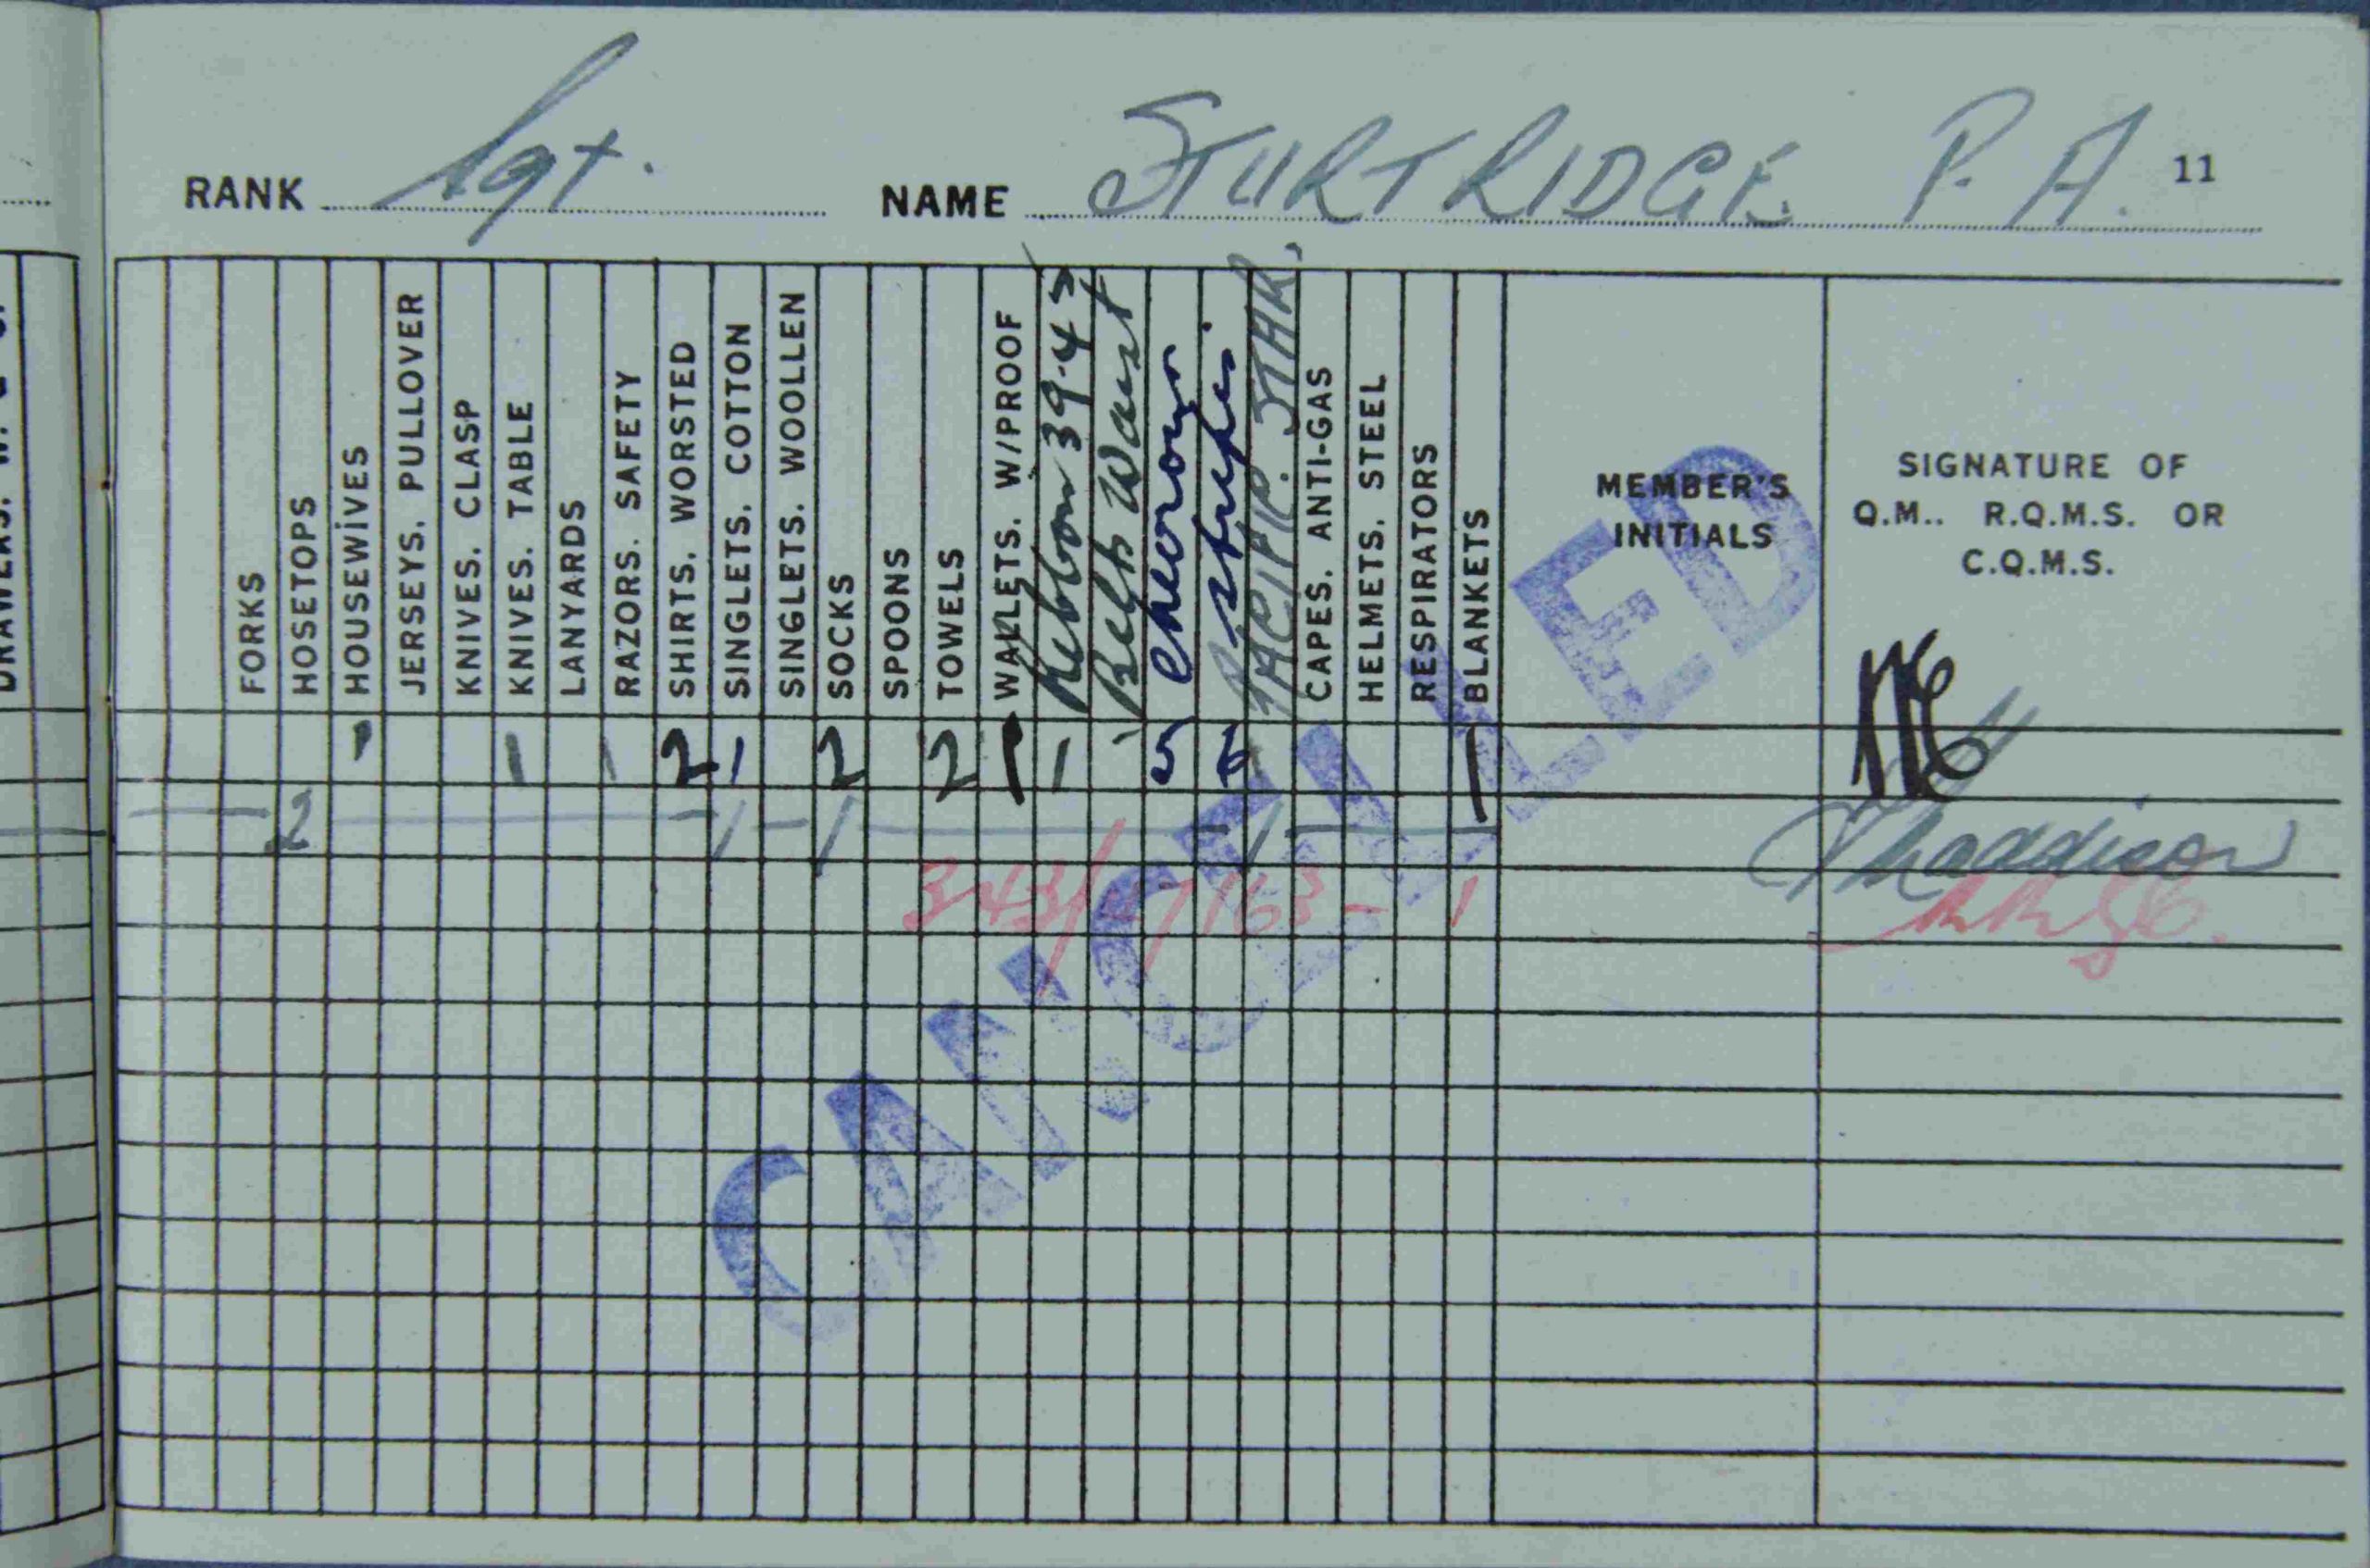 RANK Sgt. NAME STURTRIDGE P. A. 11
FORKS
HOSETOPS
HOUSEWIVES
JERSEYS. PULLOVER
KNIVES. CLASP
KNIVES. TABLE
LANYARDS
RAZORS. SAFETY
SHIRTS. WORSTED
SINGLETS. COTTON
SINGLETS. WOOLLEN
SOCKS
SPOONS
TOWELS
WALLETS. W/PROOF
Ribbon 39-43
Belts Waist
Chevrons
Stripes
PACIFIC STAR.
CAPES. ANTI-GAS
HELMETS. STEEL
RESPIRATORS
BLANKETS
MEMBER'S
INITIALS
SIGNATURE OF
Q.M.. R.Q.M.S. OR
C.Q.M.S.
1 1 1 2 1 2 2 1 1 1 5 1 1
2 1 1 1
Maddison
343/ 7163 - 1
CANCELLED